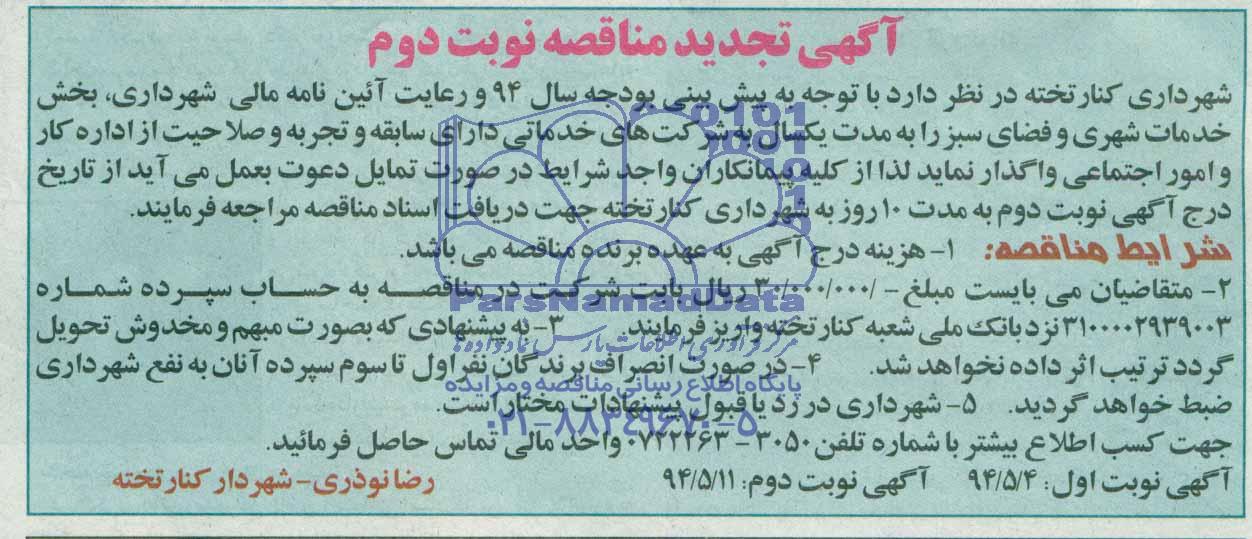 آگهی تجدید مناقصه نوبت دوم
شهرداری کنارتخته در نظر دارد با توجه به پیش بینی بودجه سال ۹۴ و رعایت آئین نامه مالی شهرداری، بخش
خدمات شهری و فضای سبز را به مدت یکسال به شرکت‌های خدماتی دارای سابقه و تجربه و صلاحیت از اداره کار
و امور اجتماعی واگذار نماید لذا از کلیه پیمانکاران واجد شرایط در صورت تمایل دعوت بعمل می آید از تاریخ
درج آگهی نوبت دوم به مدت ۱۰ روز به شهرداری کنارتخته جهت دریافت اسناد مناقصه مراجعه فرمایند.
شرایط مناقصه: ۱- هزینه درج آگهی به عهده برنده مناقصه می باشد.
۲- متقاضیان می بایست مبلغ -/۳۰/۰۰۰/۰۰۰ ریال بابت شرکت در مناقصه به حساب سپرده شماره
۳۱۰۰۰۰۲۹۳۹۰۰۳ نزد بانک ملی شعبه کنارتخته واریز فرمایند. ۳- به پیشنهادی که بصورت مبهم و مخدوش تحویل
گردد ترتیب اثر داده نخواهد شد. ۴- در صورت انصراف برندگان نفر اول تا سوم سپرده آنان به نفع شهرداری
ضبط خواهد گردید. ۵- شهرداری در رد یا قبول پیشنهادات مختار است.
جهت کسب اطلاع بیشتر با شماره تلفن ۳۰۵۰ - ۰۷۲۲۲۶۳ واحد مالی تماس حاصل فرمائید.
آگهی نوبت اول: ۹۴/۵/۴ آگهی نوبت دوم: ۹۴/۵/۱۱
رضا نوذری - شهردار کنارتخته
ParsNamadData
مرکز فرآوری اطلاعات پارس نماد داده ها
پایگاه اطلاع رسانی مناقصه و مزایده
۰۲۱-۸۸۳۴۹۶۷۰-۵